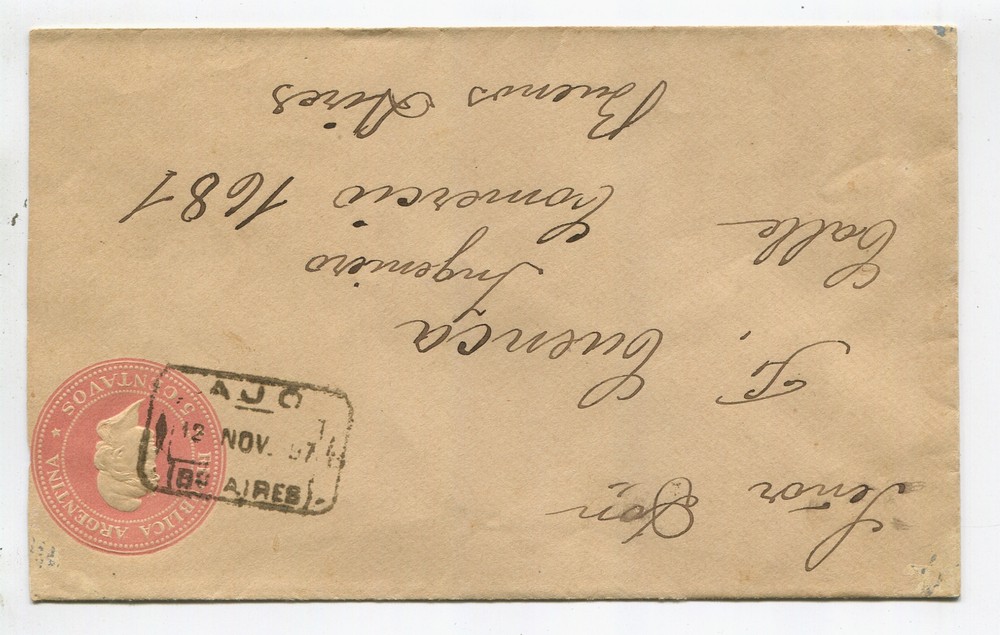 Señor Don
F. Cuenca
Ingeniero
Calle Comercio 1681
Buenos Aires
REPUBLICA ARGENTINA
★ 5 CENTAVOS ★
AJO
12 NOV. 97
BS AIRES